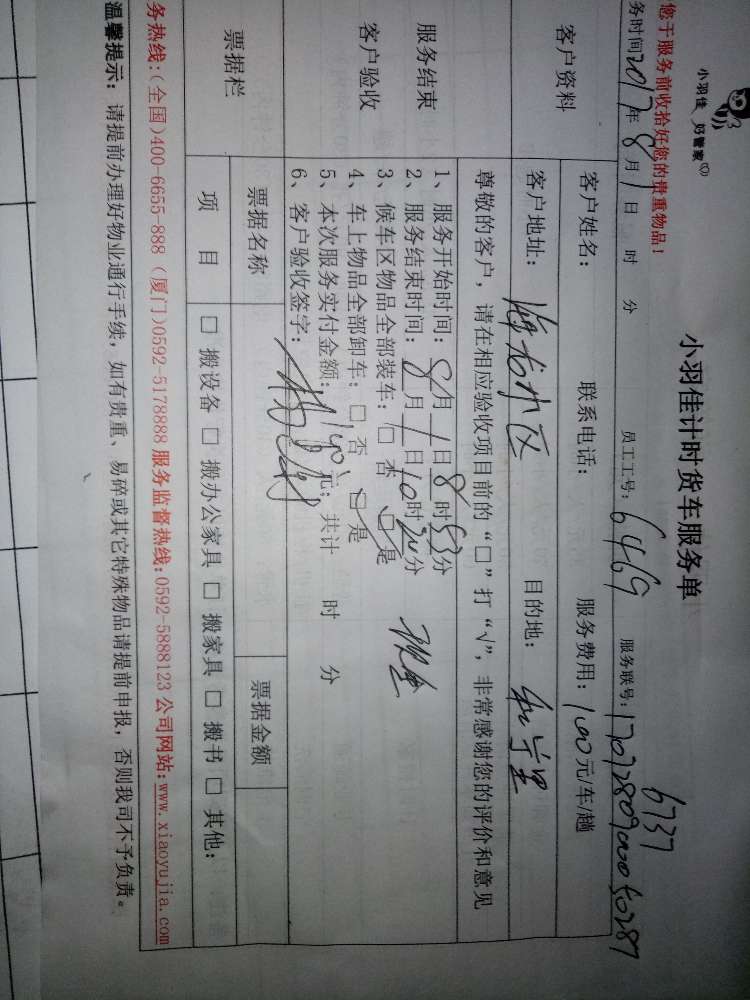 小羽佳 好管家
小羽佳计时货车服务单
您于服务前收拾好您的贵重物品!
6737
务时间2017年8月1日 时 分 员工工号:6469 服务联号:
客户资料
客户姓名: 联系电话: 服务费用:100元/车/趟
客户地址: 海龙小区 目的地: 和宁里
尊敬的客户，请在相应验收项目前的“□”打“√”，非常感谢您的评价和意见
服务结束
客户验收
1、服务开始时间:8月1日8时53分
2、服务结束时间:8月1日10时20分 现金
3、候车区物品全部装车:□ 否 ☑是
4、车上物品全部卸车:□ 否 ☑是
5、本次服务实付金额:140元; 共计 时 分
6、客户验收签字:
票据栏
票据名称 票据金额
项 目 □ 搬设备 □ 搬办公家具 □ 搬家具 □ 搬书 □ 其他:
务热线:(全国)400-6655-888 (厦门)0592-5178888 服务监督热线:0592-5888123 公司网站:www.xiaoyujia.com
温馨提示: 请提前办理好物业通行手续，如有贵重、易碎或其它特殊物品请提前申报，否则我司不予负责。